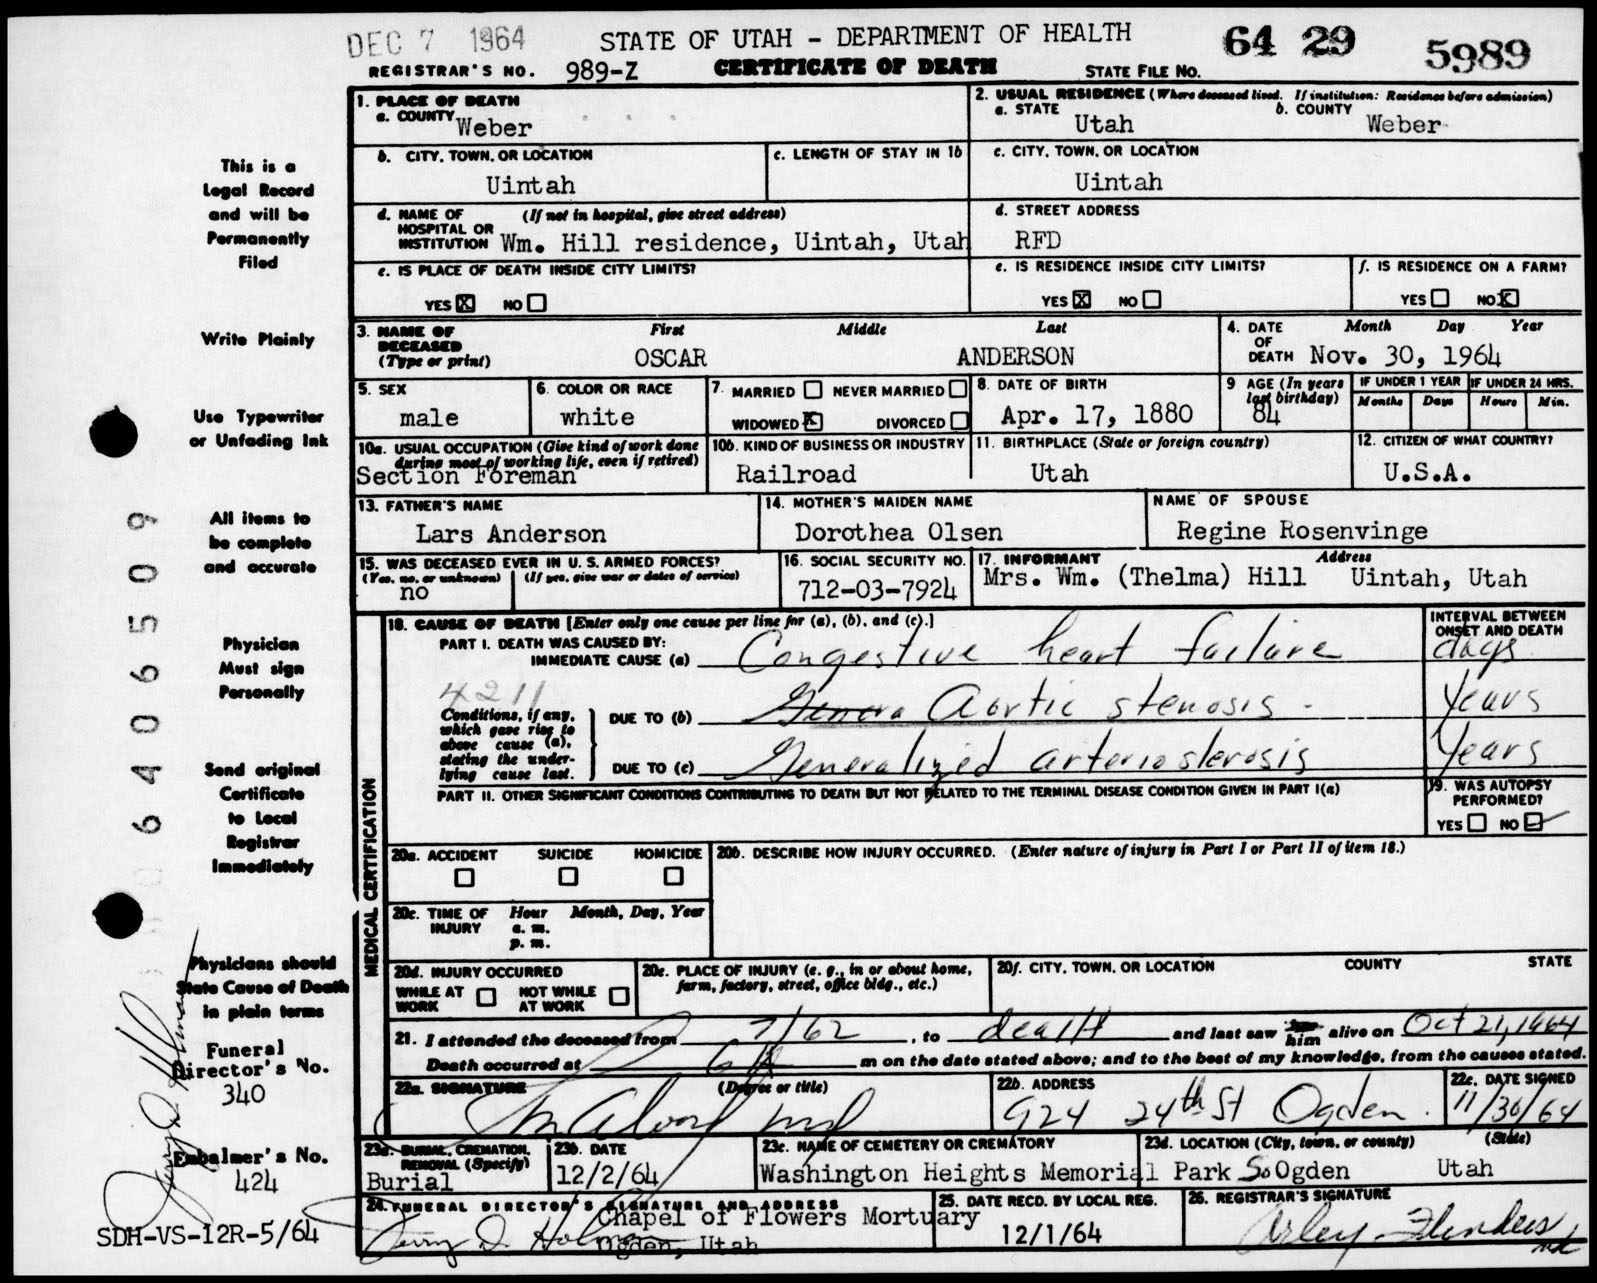 DEC 7 1964
STATE OF UTAH - DEPARTMENT OF HEALTH
64 29 5989
REGISTRAR'S NO. 989-Z
CERTIFICATE OF DEATH
STATE FILE NO.
This is a
Legal Record
and will be
Permanently
Filed
Write Plainly
Use Typewriter
or Unfading Ink
All items to
be complete
and accurate
Physician
Must sign
Personally
Send original
Certificate
to Local
Registrar
Immediately
Physicians should
State Cause of Death
in plain terms
Funeral
Director's No.
340
Embalmer's No.
424
SDH-VS-12R-5/64
06406509
1. PLACE OF DEATH
a. COUNTY Weber
2. USUAL RESIDENCE (Where deceased lived. If institution: Residence before admission)
a. STATE Utah b. COUNTY Weber
b. CITY, TOWN, OR LOCATION Uintah
c. LENGTH OF STAY IN 1b
c. CITY, TOWN, OR LOCATION Uintah
d. NAME OF HOSPITAL OR INSTITUTION (If not in hospital, give street address)
Wm. Hill residence, Uintah, Utah
d. STREET ADDRESS
RFD
e. IS PLACE OF DEATH INSIDE CITY LIMITS?
YES X NO
e. IS RESIDENCE INSIDE CITY LIMITS?
YES X NO
f. IS RESIDENCE ON A FARM?
YES NO X
3. NAME OF DECEASED (Type or print)
First Middle Last
OSCAR ANDERSON
4. DATE OF DEATH Month Day Year
Nov. 30, 1964
5. SEX
male
6. COLOR OR RACE
white
7. MARRIED NEVER MARRIED
WIDOWED X DIVORCED
8. DATE OF BIRTH
Apr. 17, 1880
9 AGE (In years last birthday)
84
IF UNDER 1 YEAR IF UNDER 24 HRS.
Months Days Hours Min.
10a. USUAL OCCUPATION (Give kind of work done during most of working life, even if retired)
Section Foreman
10b. KIND OF BUSINESS OR INDUSTRY
Railroad
11. BIRTHPLACE (State or foreign country)
Utah
12. CITIZEN OF WHAT COUNTRY?
U.S.A.
13. FATHER'S NAME
Lars Anderson
14. MOTHER'S MAIDEN NAME
Dorothea Olsen
NAME OF SPOUSE
Regine Rosenvinge
15. WAS DECEASED EVER IN U. S. ARMED FORCES?
(Yes, no, or unknown) (If yes, give war or dates of service)
no
16. SOCIAL SECURITY NO.
712-03-7924
17. INFORMANT Address
Mrs. Wm. (Thelma) Hill Uintah, Utah
MEDICAL CERTIFICATION
18. CAUSE OF DEATH [Enter only one cause per line for (a), (b), and (c).]
INTERVAL BETWEEN ONSET AND DEATH
PART I. DEATH WAS CAUSED BY:
IMMEDIATE CAUSE (a) Congestive heart failure days
4211
Conditions, if any, which gave rise to above cause (a), stating the underlying cause last.
DUE TO (b) Genera Aortic stenosis - years
DUE TO (c) Generalized arteriosclerosis years
PART II. OTHER SIGNIFICANT CONDITIONS CONTRIBUTING TO DEATH BUT NOT RELATED TO THE TERMINAL DISEASE CONDITION GIVEN IN PART I(a)
19. WAS AUTOPSY PERFORMED?
YES NO
20a. ACCIDENT SUICIDE HOMICIDE
20b. DESCRIBE HOW INJURY OCCURRED. (Enter nature of injury in Part I or Part II of item 18.)
20c. TIME OF INJURY Hour Month, Day, Year
a. m.
p. m.
20d. INJURY OCCURRED
WHILE AT WORK NOT WHILE AT WORK
20e. PLACE OF INJURY (e. g., in or about home, farm, factory, street, office bldg., etc.)
20f. CITY, TOWN, OR LOCATION COUNTY STATE
21. I attended the deceased from 7/62, to death and last saw him alive on Oct 21, 1964
Death occurred at 6 m on the date stated above; and to the best of my knowledge, from the causes stated.
22a. SIGNATURE (Degree or title)
md
22b. ADDRESS
924 24th St Ogden.
22c. DATE SIGNED
11/30/64
23a. BURIAL, CREMATION, REMOVAL (Specify)
Burial
23b. DATE
12/2/64
23c. NAME OF CEMETERY OR CREMATORY
Washington Heights Memorial Park
23d. LOCATION (City, town, or county) (State)
So Ogden Utah
24. FUNERAL DIRECTOR'S SIGNATURE AND ADDRESS
Chapel of Flowers Mortuary
Ogden, Utah
25. DATE RECD. BY LOCAL REG.
12/1/64
26. REGISTRAR'S SIGNATURE